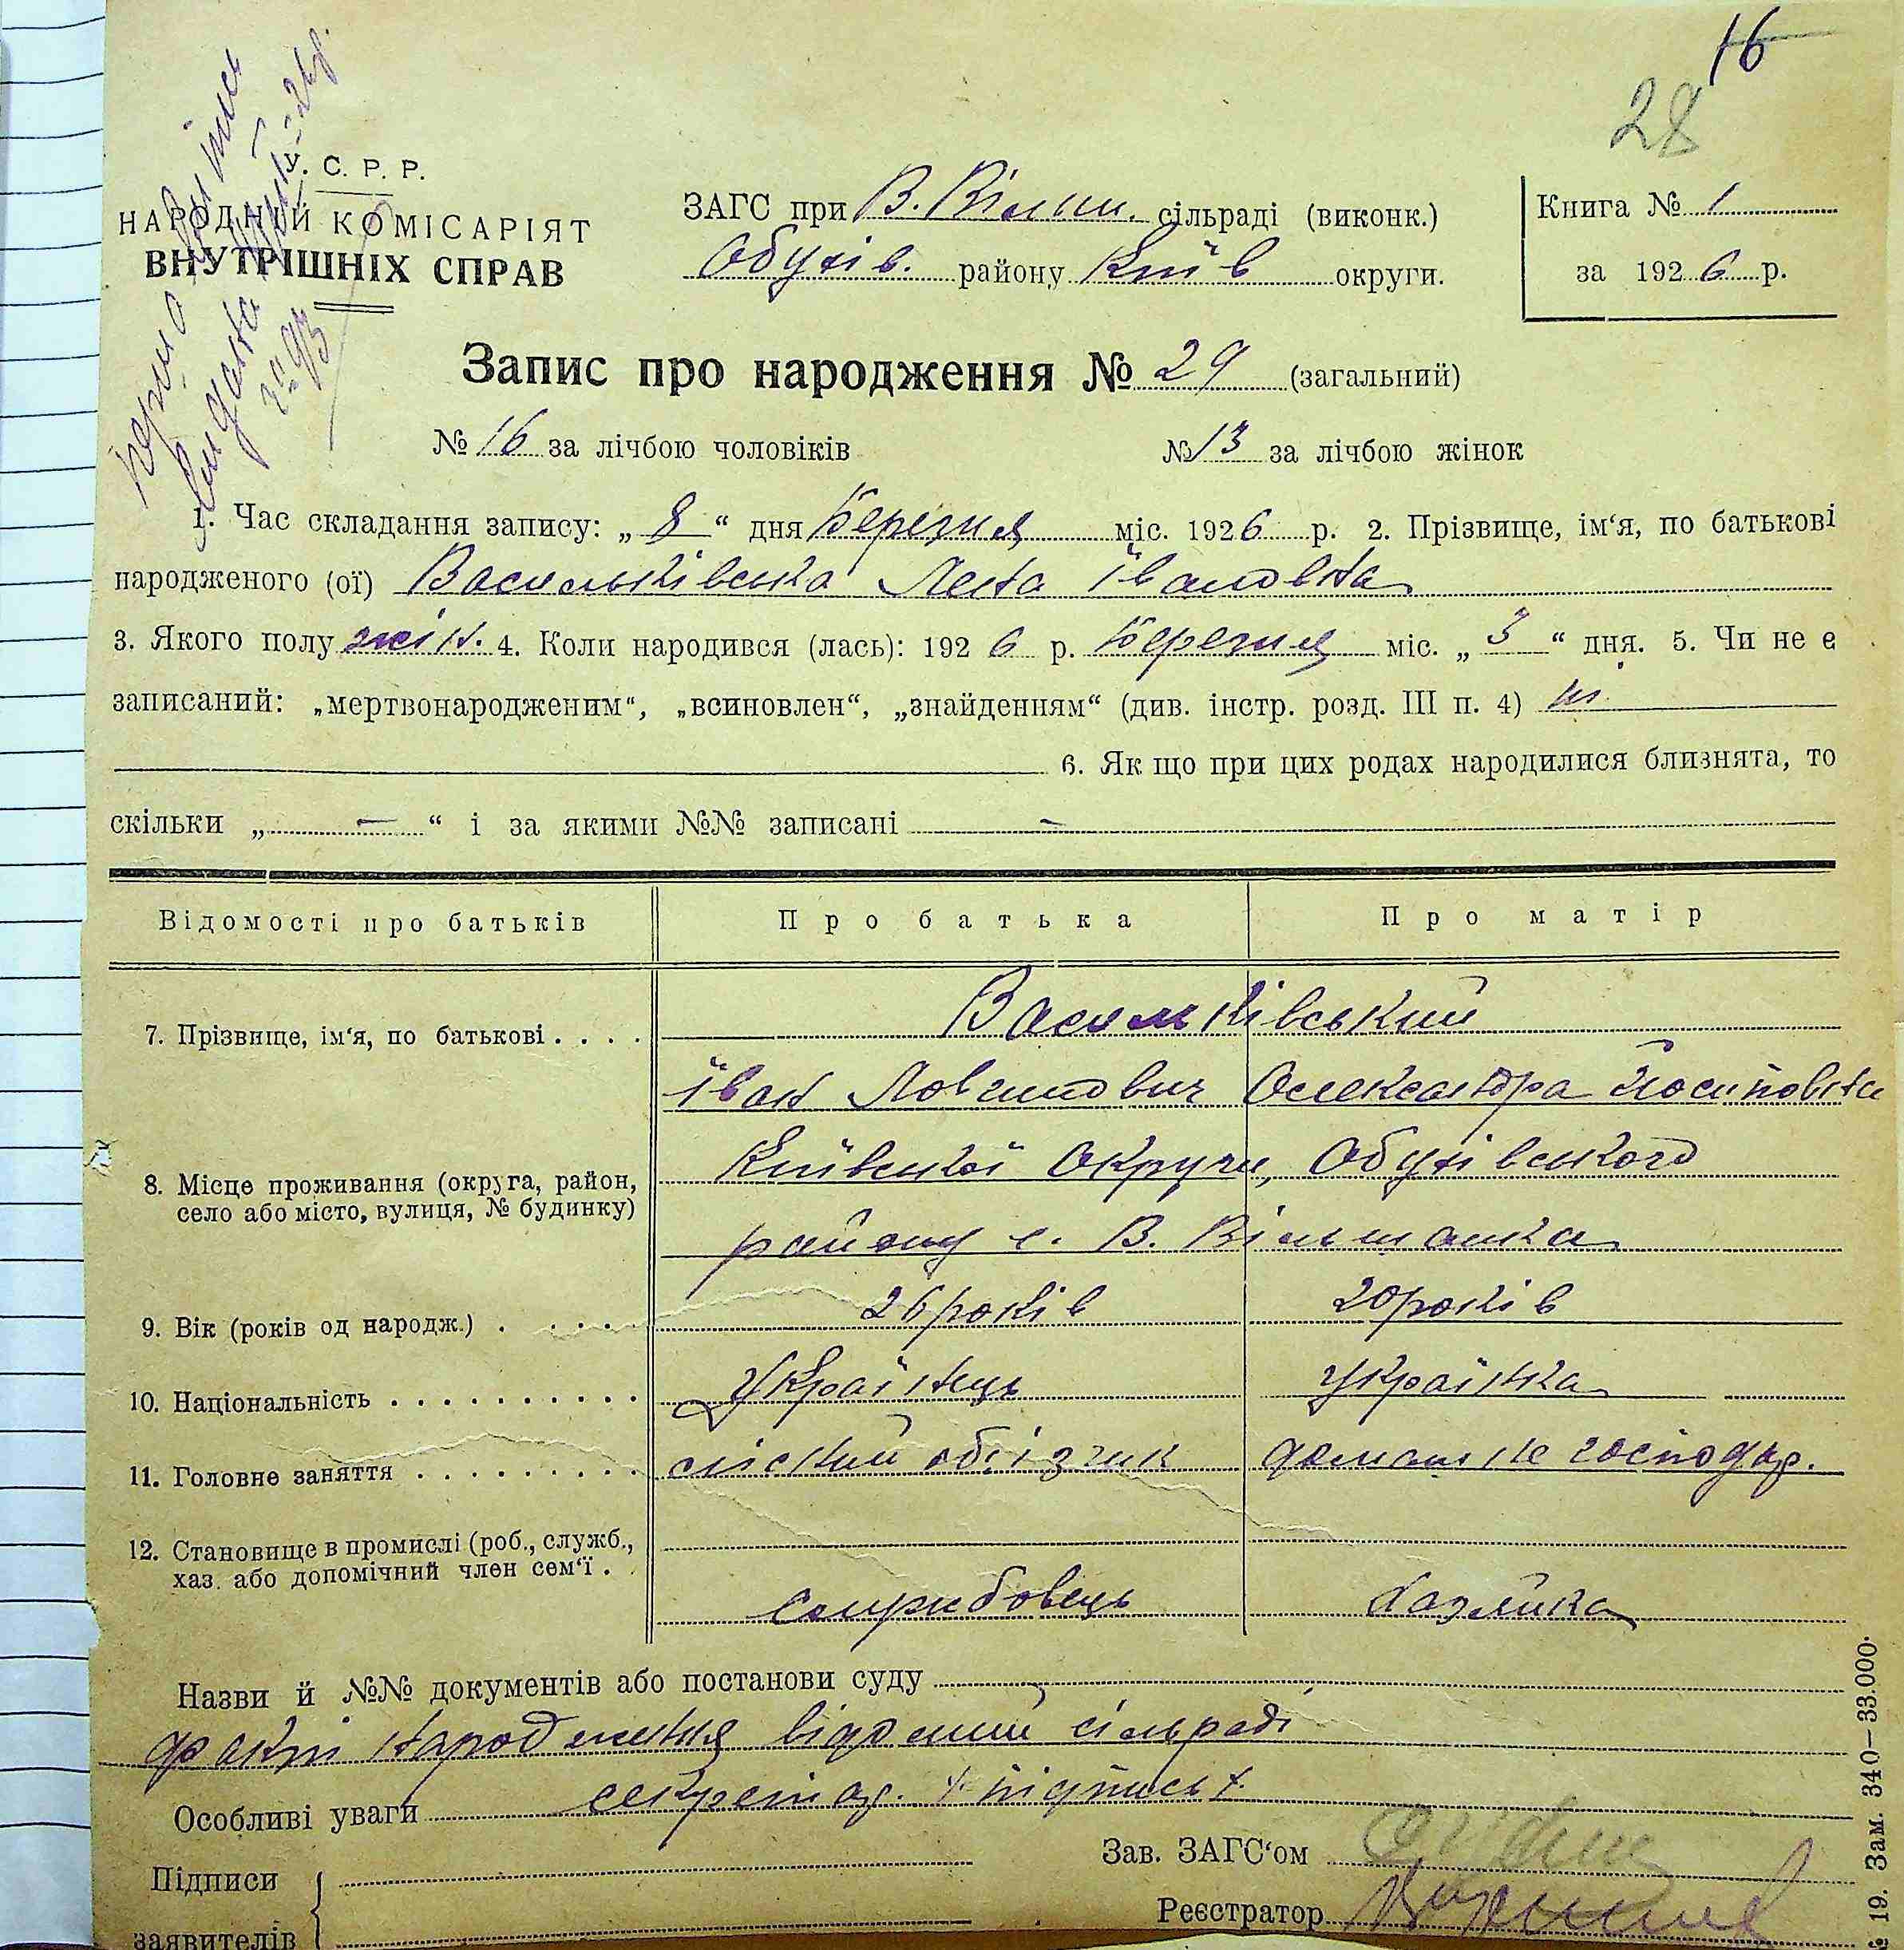 16
28
У. С. Р. Р.
НАРОДНІЙ КОМІСАРІЯТ
ВНУТРІШНІХ СПРАВ
ЗАГС при В. Вільш. сільраді (виконк.)
Обухів. району Київ округи.
Книга № 1
за 1926 р.
Запис про народження № 29 (загальний)
№ 16 за лічбою чоловіків № 13 за лічбою жінок
1. Час складання запису: „ 8 “ дня Березня міс. 1926 р. 2. Прізвище, ім‘я, по батькові
народженого (ої) Васильківська Леся Івановна
3. Якого полу жін. 4. Коли народився (лась): 1926 р. Березня міс. „ 3 “ дня. 5. Чи не є
записаний: „мертвонародженим“, „всиновлен“, „знайденням“ (див. інстр. розд. III п. 4) ні
6. Як що при цих родах народилися близнята, то
скільки „ — “ і за якими №№ записані —
Відомості про батьків Про батька Про матір
7. Прізвище, ім‘я, по батькові . . . . Васильківський
Іван Логинович Олександра Йосиповна
8. Місце проживання (округа, район, село або місто, вулиця, № будинку) Київської Округи, Обухівського
району с. В. Вільшанка
9. Вік (років од народж.) . . . . . 26 років 20 років
10. Національність . . . . . . . . . . Українець Українка
11. Головне заняття . . . . . . . . . лісний обїзчик домашнє господар.
12. Становище в промислі (роб., служб.,
хаз. або допомічний член сем‘ї . . службовець хазяйка
Назви й №№ документів або постанови суду
факт народження відомий сільраді
Особливі уваги секретар. /підпись/.
Підписи
заявителів
Зав. ЗАГС‘ом
Реєстратор
19. Зам. 340—33.000.